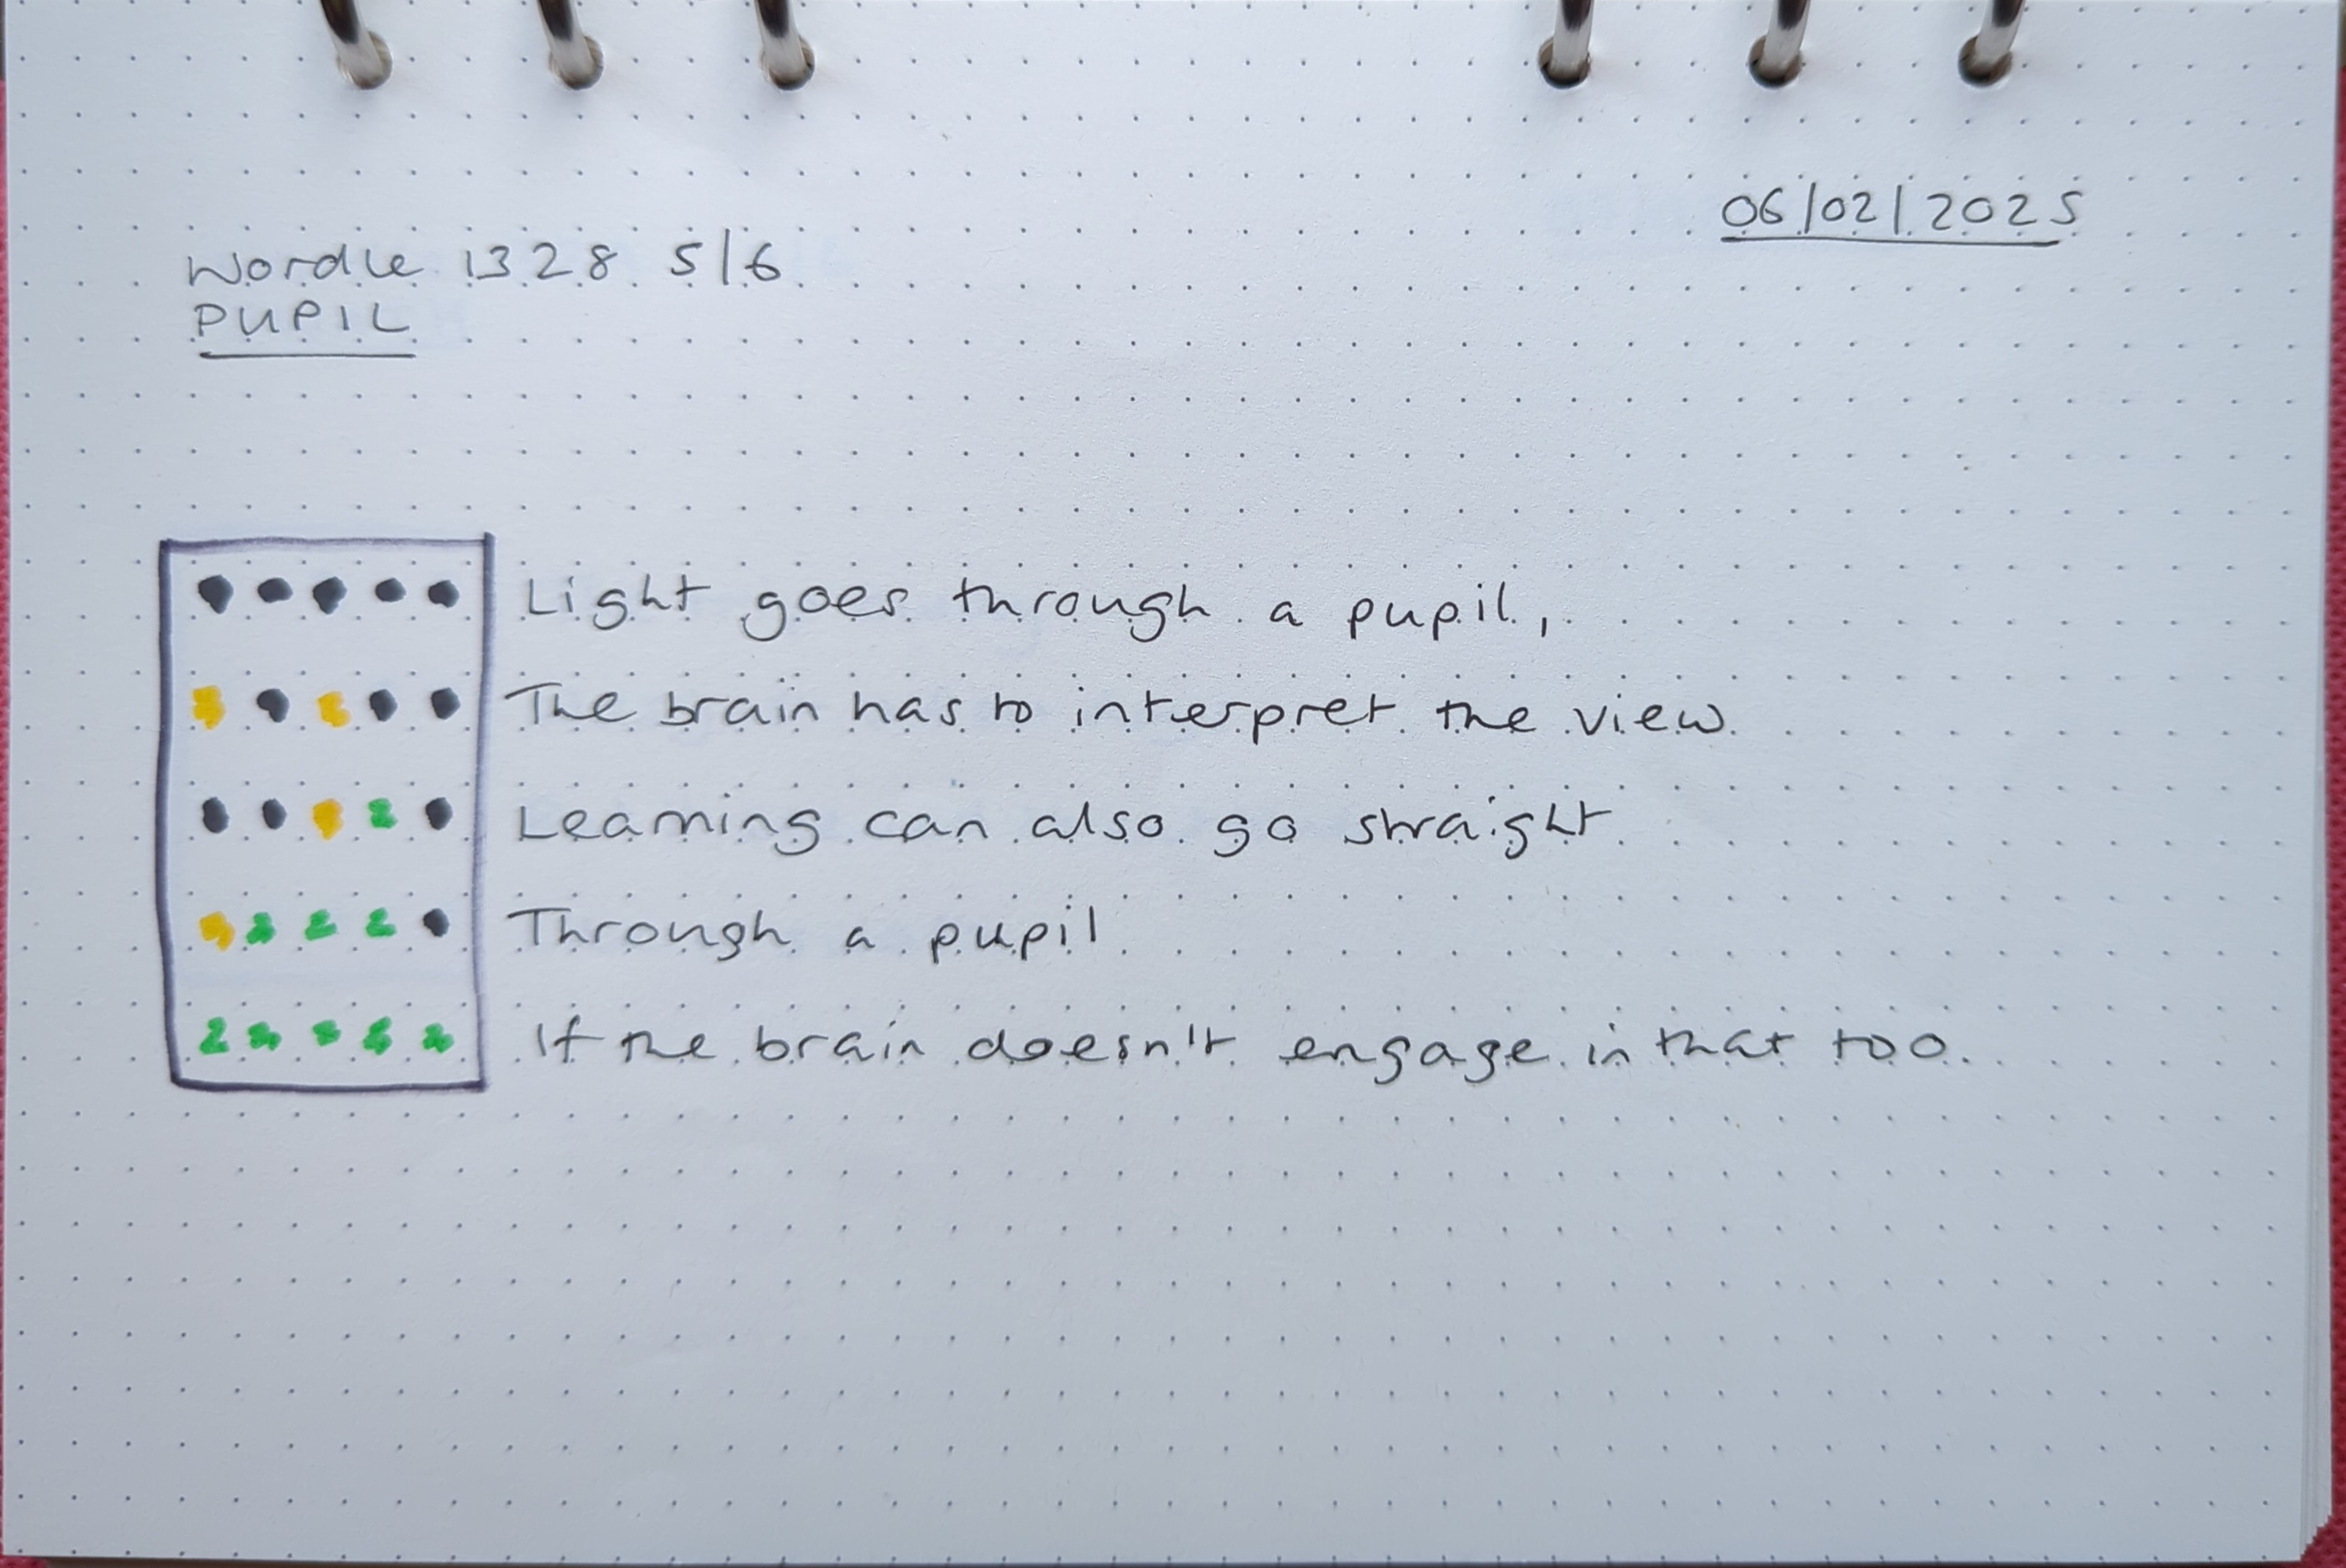 06/02/2025
Wordle 1328 5/6
PUPIL
Light goes through a pupil,
The brain has to interpret the view.
Learning can also go straight
Through a pupil
If the brain doesn't engage in that too.